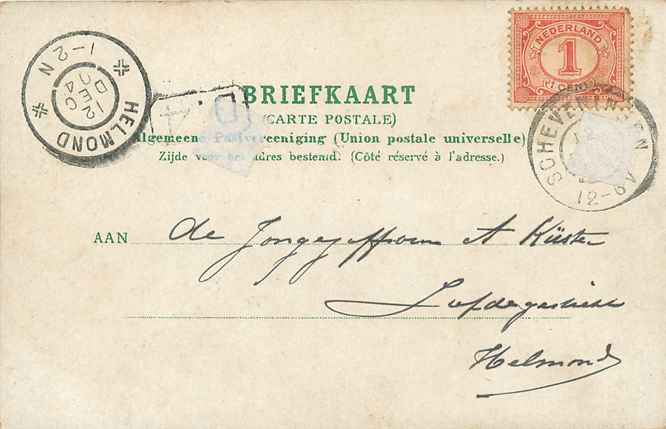 NEDERLAND
1
CENT
BRIEFKAART
(CARTE POSTALE)
Algemeene Postvereeniging (Union postale universelle)
Zijde voor het adres bestemd. (Côté réservé à l'adresse.)
HELMOND
12 DEC 04
1-2 N
SCHEVENINGEN
AAN de Jongejuffrouw A Küster
Liefdegesticht
Helmond